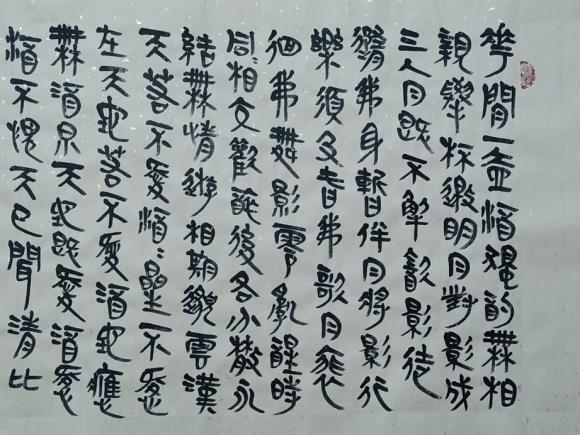 花間一壺酒獨酌無相
親舉杯邀明月對影成
三人月既不解飲影徒
隨我身暫伴月將影行
樂須及春我歌月徘
徊我舞影零亂醒時
同相交歡醉後各分散永
結無情遊相期邈雲漢
天若不愛酒〻星不愛
在天地若不愛酒地應
無酒泉天地既愛酒愛
酒不愧天已聞清比